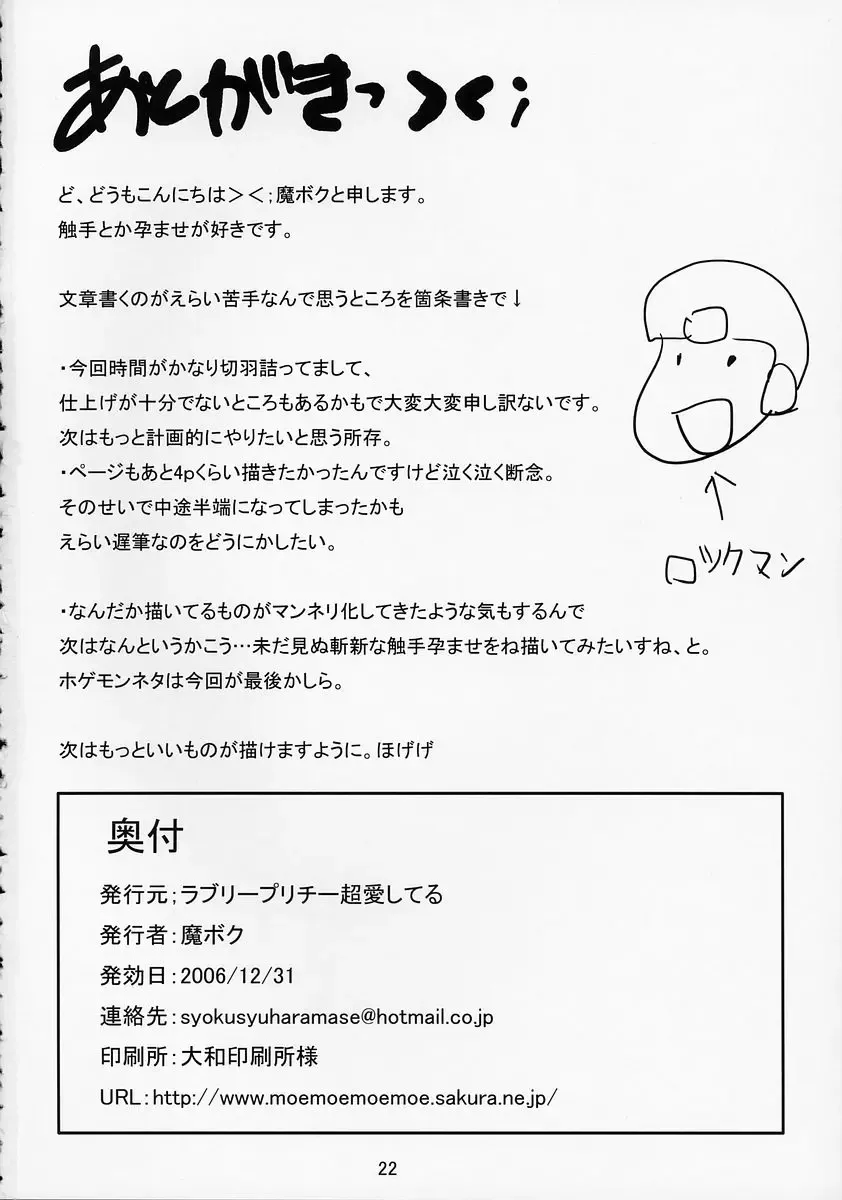 あとがきっ><;
ど、どうもこんにちは＞＜;魔ボクと申します。
触手とか孕ませが好きです。
文章書くのがえらい苦手なんで思うところを箇条書きで↓
・今回時間がかなり切羽詰ってまして、
仕上げが十分でないところもあるかもで大変大変申し訳ないです。
次はもっと計画的にやりたいと思う所存。
・ページもあと4pくらい描きたかったんですけど泣く泣く断念。
そのせいで中途半端になってしまったかも
えらい遅筆なのをどうにかしたい。
ロックマン
・なんだか描いてるものがマンネリ化してきたような気もするんで
次はなんというかこう…未だ見ぬ斬新な触手孕ませをね描いてみたいすね、と。
ホゲモンネタは今回が最後かしら。
次はもっといいものが描けますように。ほげげ
奥付
発行元;ラブリープリチー超愛してる
発行者:魔ボク
発効日:2006/12/31
連絡先:syokusyuharamase@hotmail.co.jp
印刷所:大和印刷所様
URL:http://www.moemoemoemoe.sakura.ne.jp/
22